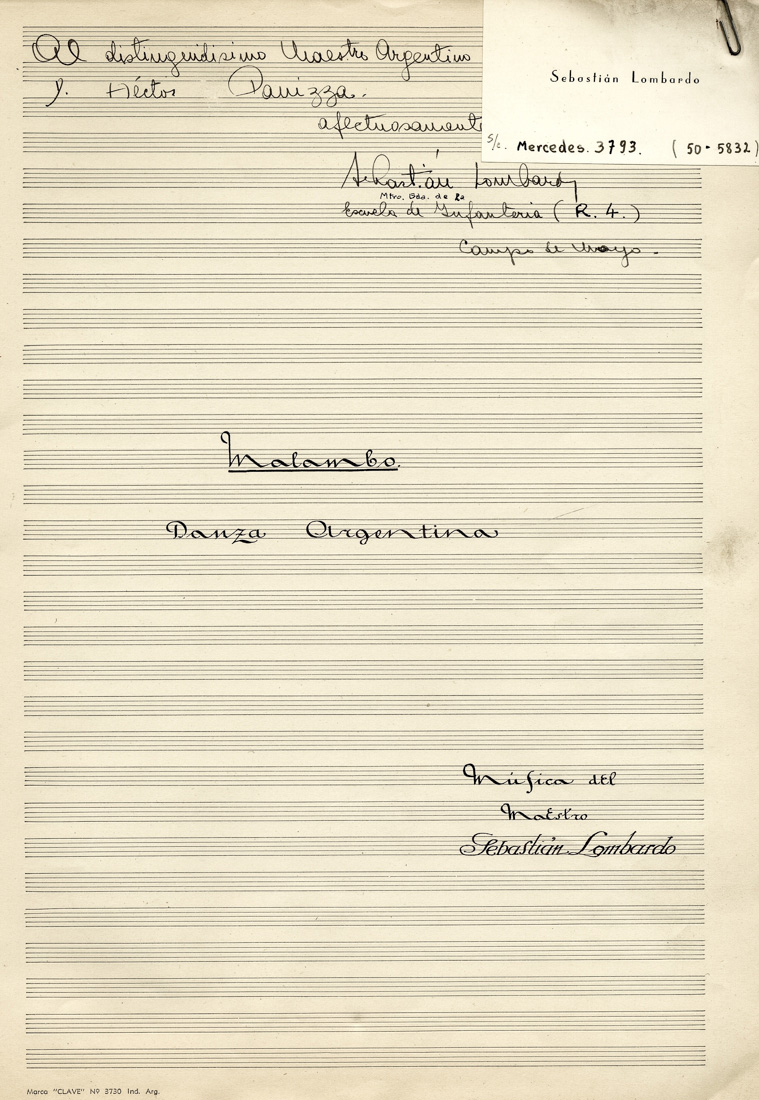 Al distinguidisimo Maestro Argentino
D. Héctor Panizza.
afectuosamente
Sebastián Lombardo
Mtro. Bda. de la
Escuela de Infanteria (R. 4.)
Campo de Mayo.
Sebastián Lombardo
S/c. Mercedes. 3793. (50-5832)
Malambo.
Danza Argentina
Música del
Maestro
Sebastián Lombardo
Marca "CLAVE" Nº 3730 Ind. Arg.